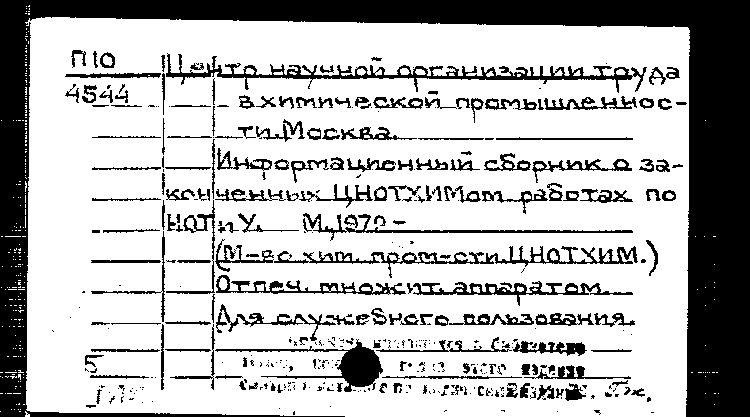 П10
4544
Центр научной организации труда
в химической промышленнос-
ти. Москва.
Информационный сборник о за-
конченных ЦНОТХИМом работах по
НОТ и У. М., 1970 -
(М-во хим. пром-сти. ЦНОТХИМ.)
Отпеч. множит. аппаратом.
Для служебного пользования.
в библиотеке
этого издания
5